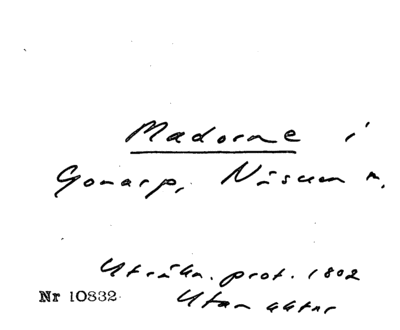 Madorne i
Gonarp, Näsum m.
Uträkn. prot. 1802
Nr 10832
Utan aktnr